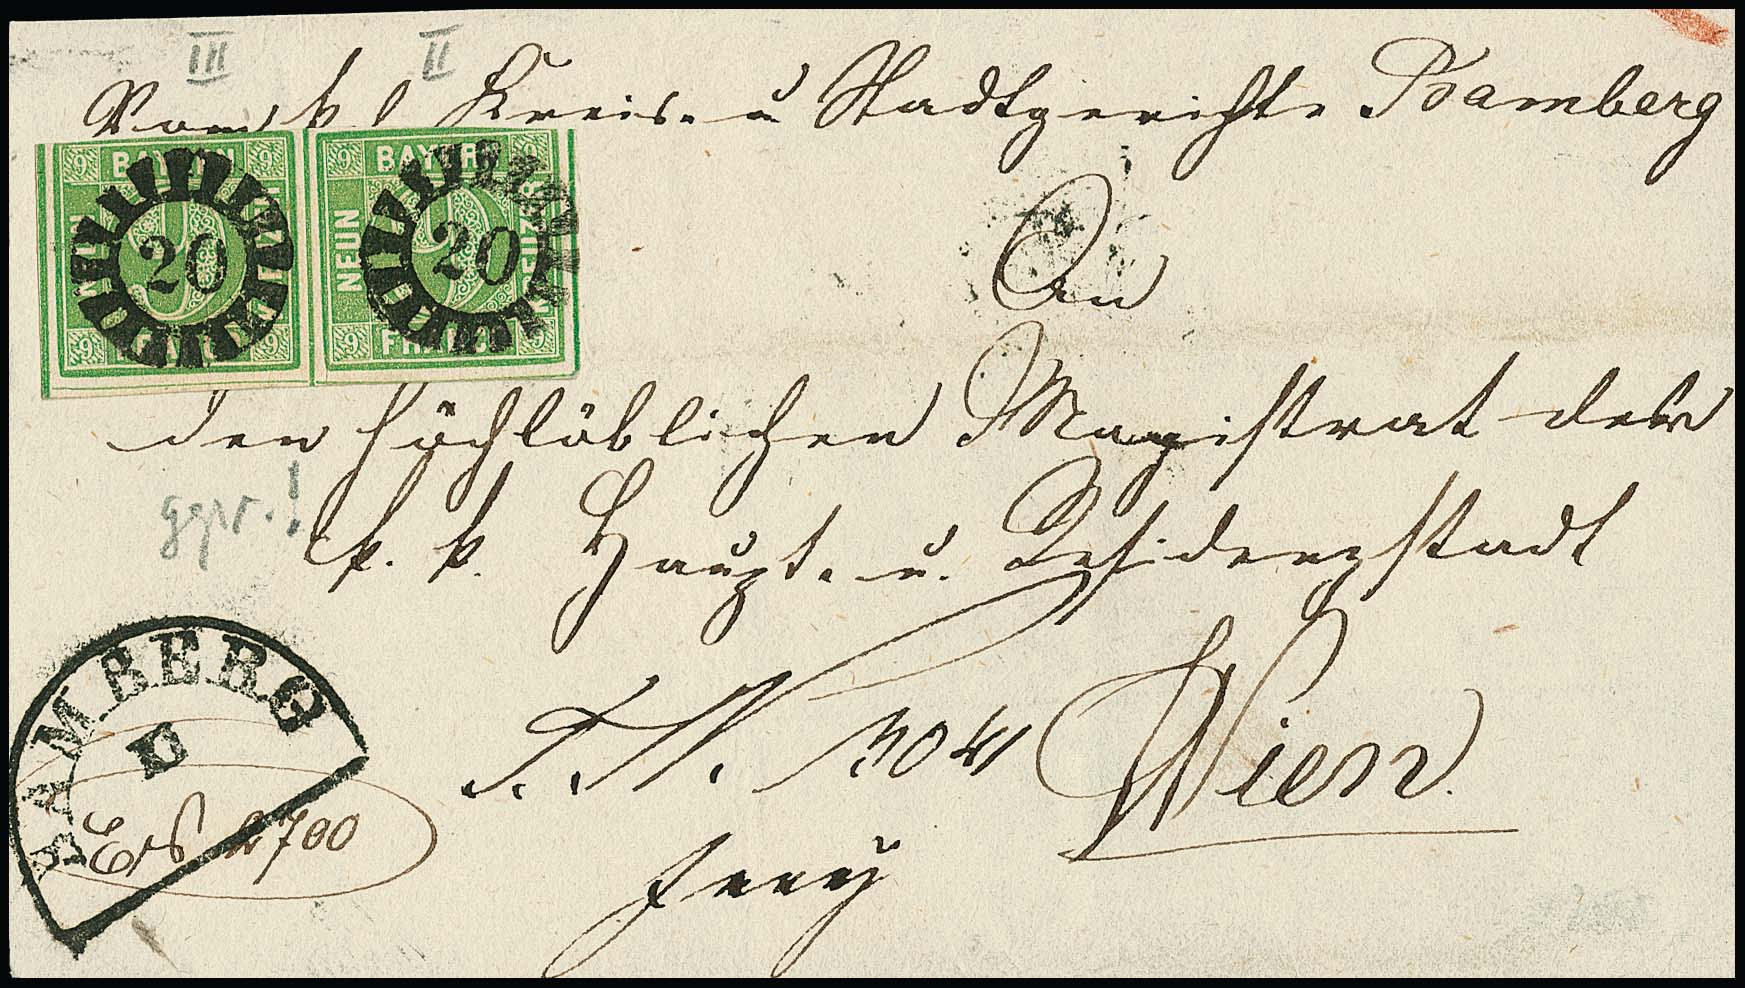 III II
Vom k. Kreis- u Stadtgerichte Bamberg
9 BAYERN 9 9 BAYERN 9
NEUN KREUZER NEUN KREUZER
20 20
9 FRANCO 9 9 FRANCO 9
An
den hochlöblichen Magistrat der
ggpr.!
k. k. Haupt- u. Residenzstadt
Wien
BAMBERG
E. N. 3041
Ers 2700